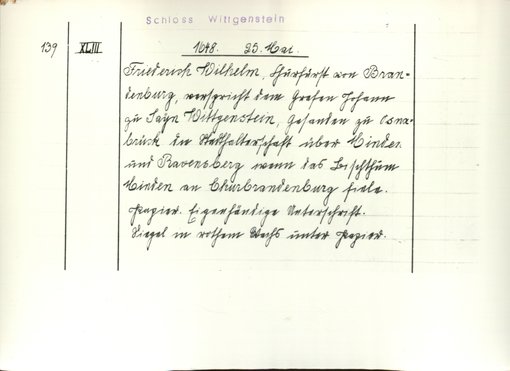 Schloss Wittgenstein
139 XLIII 1648. 25. Mai.
Friederich Wilhelm, Churfürst von Bran-
denburg, verspricht dem Grafen Johann
zu Sayn Wittgenstein, Gesanden zu Osna-
brück die Statthalterschaft über Minden
und Ravensberg wenn das Bischthum
Minden an Churbrandenburg fiele.
Papier. Eigenhändige Unterschrift.
Siegel in rothem Wachs unter Papier.